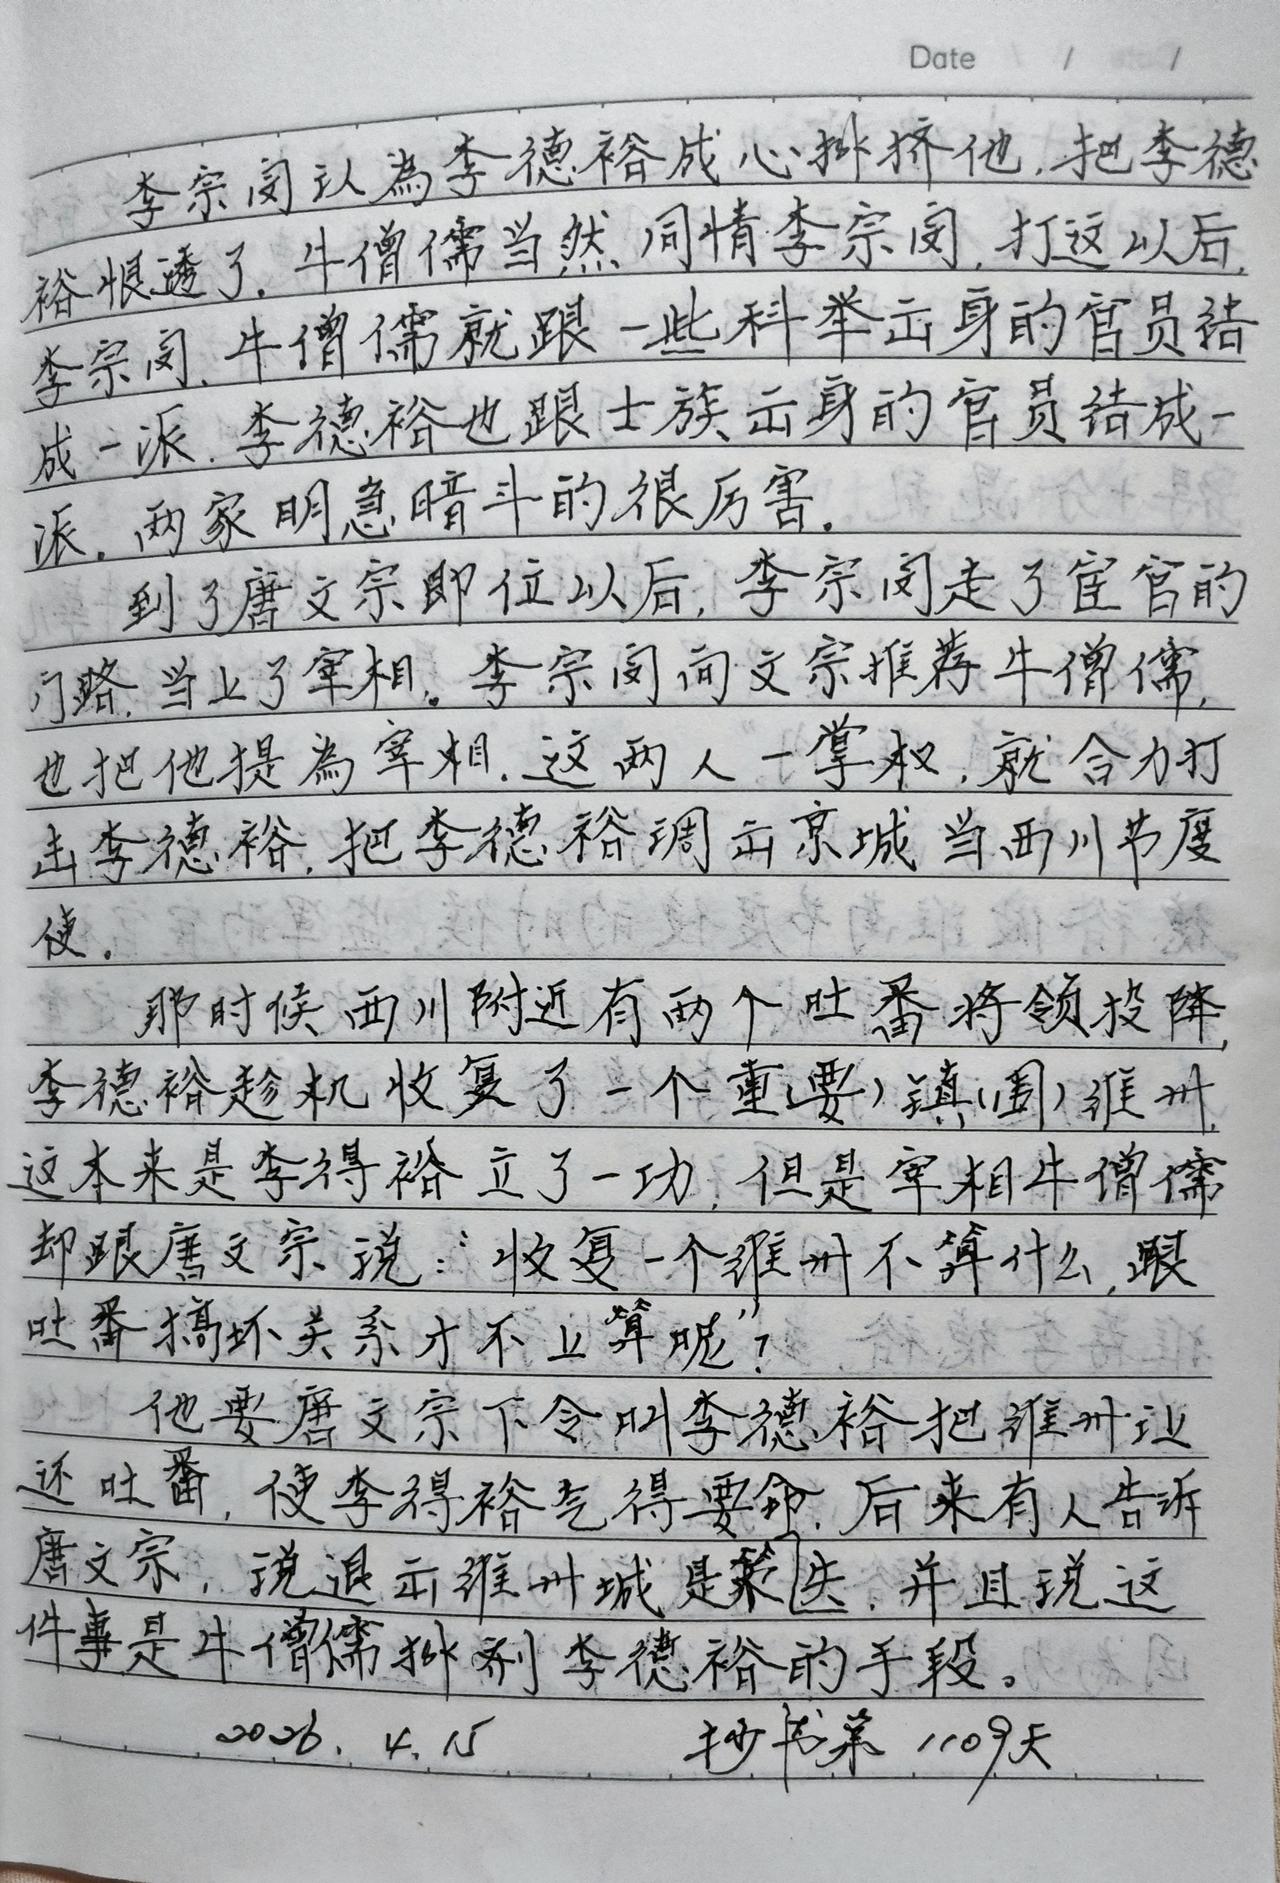 Date / /
李宗闵认為李德裕成心排挤他，把李德
裕恨透了。牛僧儒当然同情李宗闵，打这以后，
李宗闵、牛僧儒就跟一些科举出身的官员结
成一派，李德裕也跟士族出身的官员结成一
派，两家明急暗斗的很厉害。
到了唐文宗即位以后，李宗闵走了宦官的
门路，当上了宰相。李宗闵向文宗推荐牛僧儒，
也把他提為宰相，这两人一掌权，就合力打
击李德裕，把李德裕调出京城当西川节度
使。
那时候西川附近有两个吐番将领投降，
李德裕趁机收复了一个重(要)镇(周)维州，
这本来是李得裕立了一功，但是宰相牛僧儒
却跟唐文宗说："收复一个维州不算什么，跟
吐番搞坏关系才不上算呢"？
他要唐文宗下令叫李德裕把维州让
还吐番，使李得裕气得要命，后来有人告诉
唐文宗，说退出维州城是失，并且说这
件事是牛僧儒排剂李德裕的手段。
2026.4.15 抄书第1109天